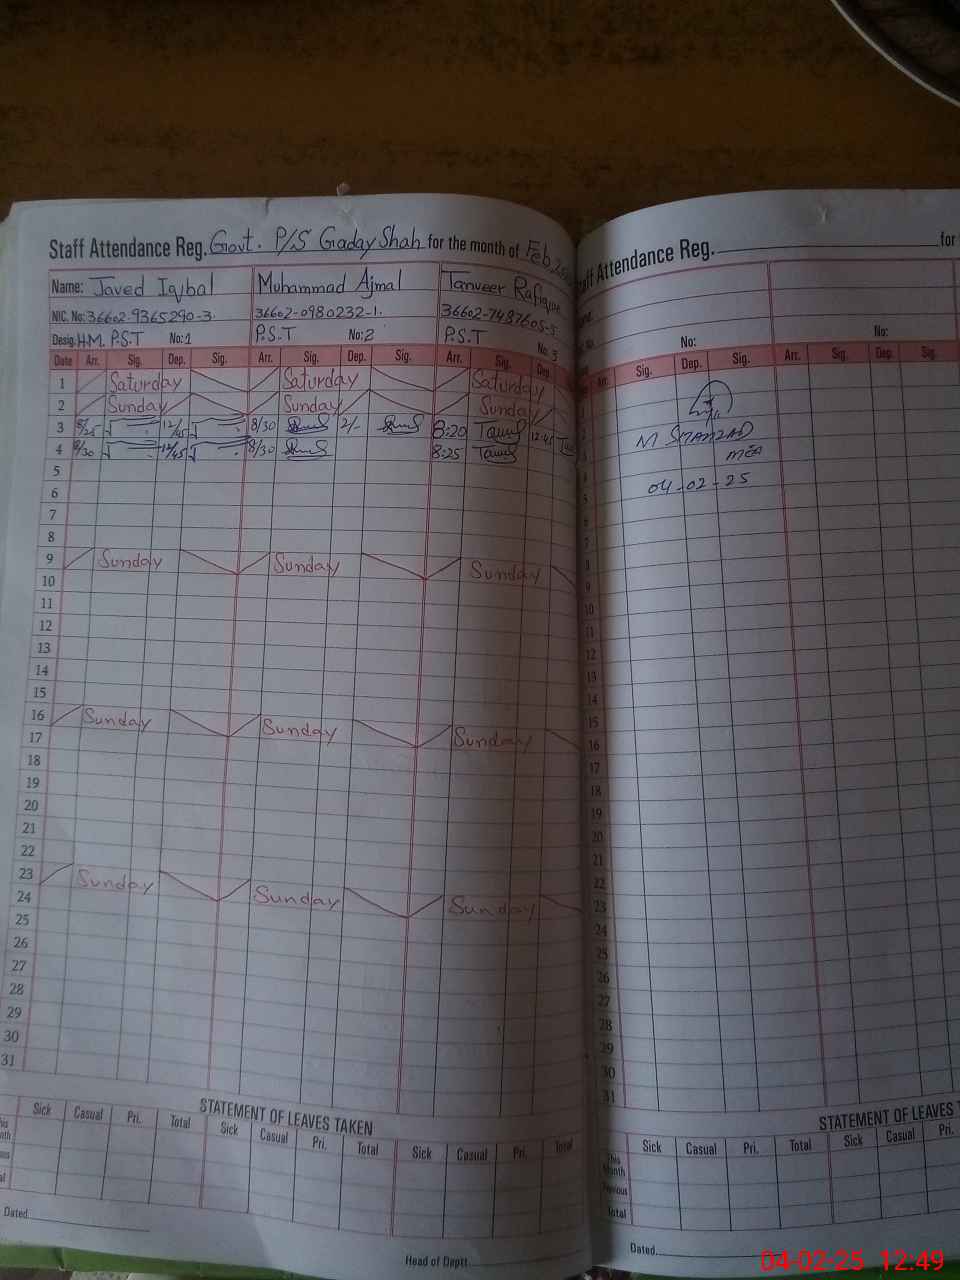 Staff Attendance Reg. Govt. P/S Gaday Shah for the month of Feb
Name: Javed Iqbal Muhammad Ajmal Tanveer Rafique
NIC. No: 36602-9365290-3 36602-0980232-1. 36602-7487605-5
Desig. H.M. P.S.T No: 1 P.S.T No: 2 P.S.T No: 3
Date Arr. Sig. Dep. Sig. Arr. Sig. Dep. Sig. Arr. Sig. Dep.
1 Saturday Saturday Saturday
2 Sunday Sunday Sunday
3 8/25 12/45 8/30 2/- 8:20 12:45
4 8/30 12/45 8/30 8:25
5
6
7
8
9 Sunday Sunday Sunday
10
11
12
13
14
15
16 Sunday Sunday Sunday
17
18
19
20
21
22
23 Sunday Sunday Sunday
24
25
26
27
28
29
30
31
STATEMENT OF LEAVES TAKEN
Sick Casual Pri. Total Sick Casual Pri. Total Sick Casual Pri. Total
Dated
Head of Deptt.
Attendance Reg. for
No: No:
Arr. Sig. Dep. Sig. Arr. Sig. Dep. Sig.
M SHAHZAD
MEA
04-02-25
7
8
9
10
11
12
13
14
15
16
17
18
19
20
21
22
23
24
25
26
27
28
29
30
31
STATEMENT OF LEAVES
Sick Casual Pri. Total Sick Casual Pri.
This Month
Previous
Total
Dated
04-02-25 12:49